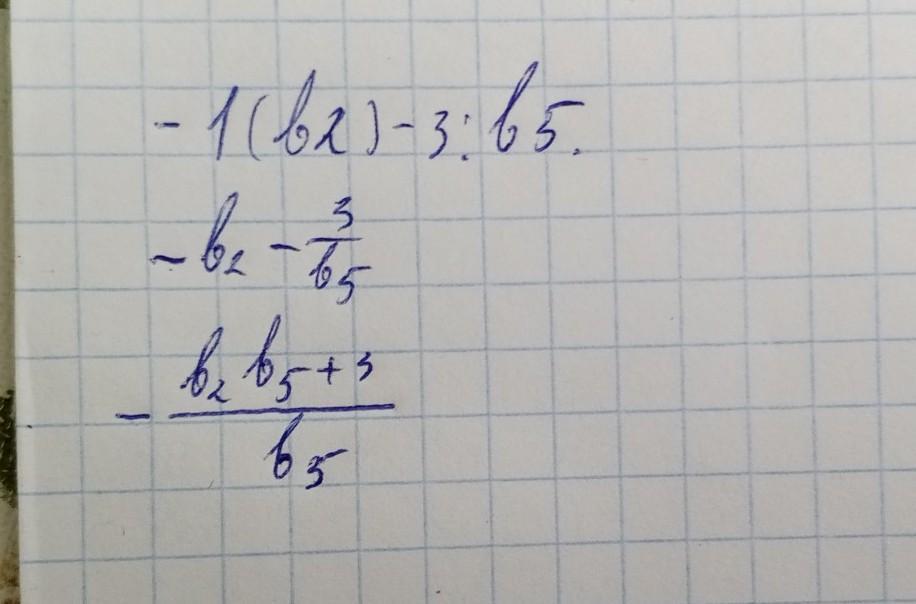 -1(b2)-3:b5.
-b₂ - 3/b₅
- (b₂ b₅ + 3)/b₅